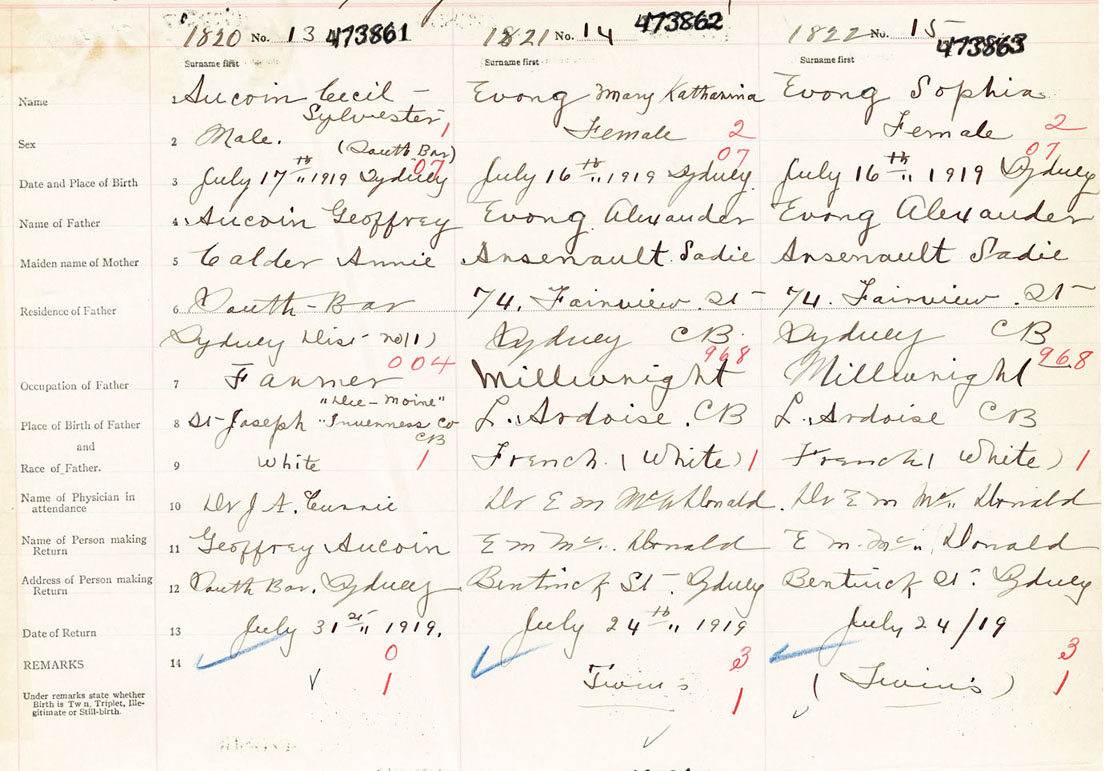 1820 No. 13 473861 1821 No. 14 473862 1822 No. 15 473863
Surname first Surname first Surname first
Name 1 Aucoin Cecil – Evong Mary Katharina Evong Sophia
Sylvester
Sex 2 Male. 1 Female 2 Female 2
(South Bar) 07 07 07
Date and Place of Birth 3 July 17th " 1919 Sydney July 16th " 1919 Sydney. July 16th " 1919 Sydney
Name of Father 4 Aucoin Geoffrey Evong Alexander Evong Alexander
Maiden name of Mother 5 Calder Annie Arsenault Sadie Arsenault Sadie
Residence of Father 6 South-Bar 74. Fairview St – 74. Fairview St –
Sydney Dist – No(1) Sydney CB. Sydney CB
004 968 968
Occupation of Father 7 Farmer Millwright Millwright
"Dle – Moine"
Place of Birth of Father 8 St Joseph "Inverness Co L. Ardoise. CB L. Ardoise CB
CB
and
Race of Father. 9 White 1 French (White) 1 French (White) 1
Name of Physician in
attendance 10 Dr J A. Currie Dr E M McDonald. Dr E M Mc" Donald
Name of Person making
Return 11 Geoffrey Aucoin E M Mc". Donald E. M. Mc" Donald
Address of Person making
Return 12 South Bar. Sydney Bentinck St – Sydney Bentinck St. Sydney
Date of Return 13 July 31st " 1919. July 24th " 1919 July 24/19
REMARKS 14 0 3 3
1 Twins 1 (Twins) 1
Under remarks state whether
Birth is Twn, Triplet, Ille-
gitimate or Still-birth.